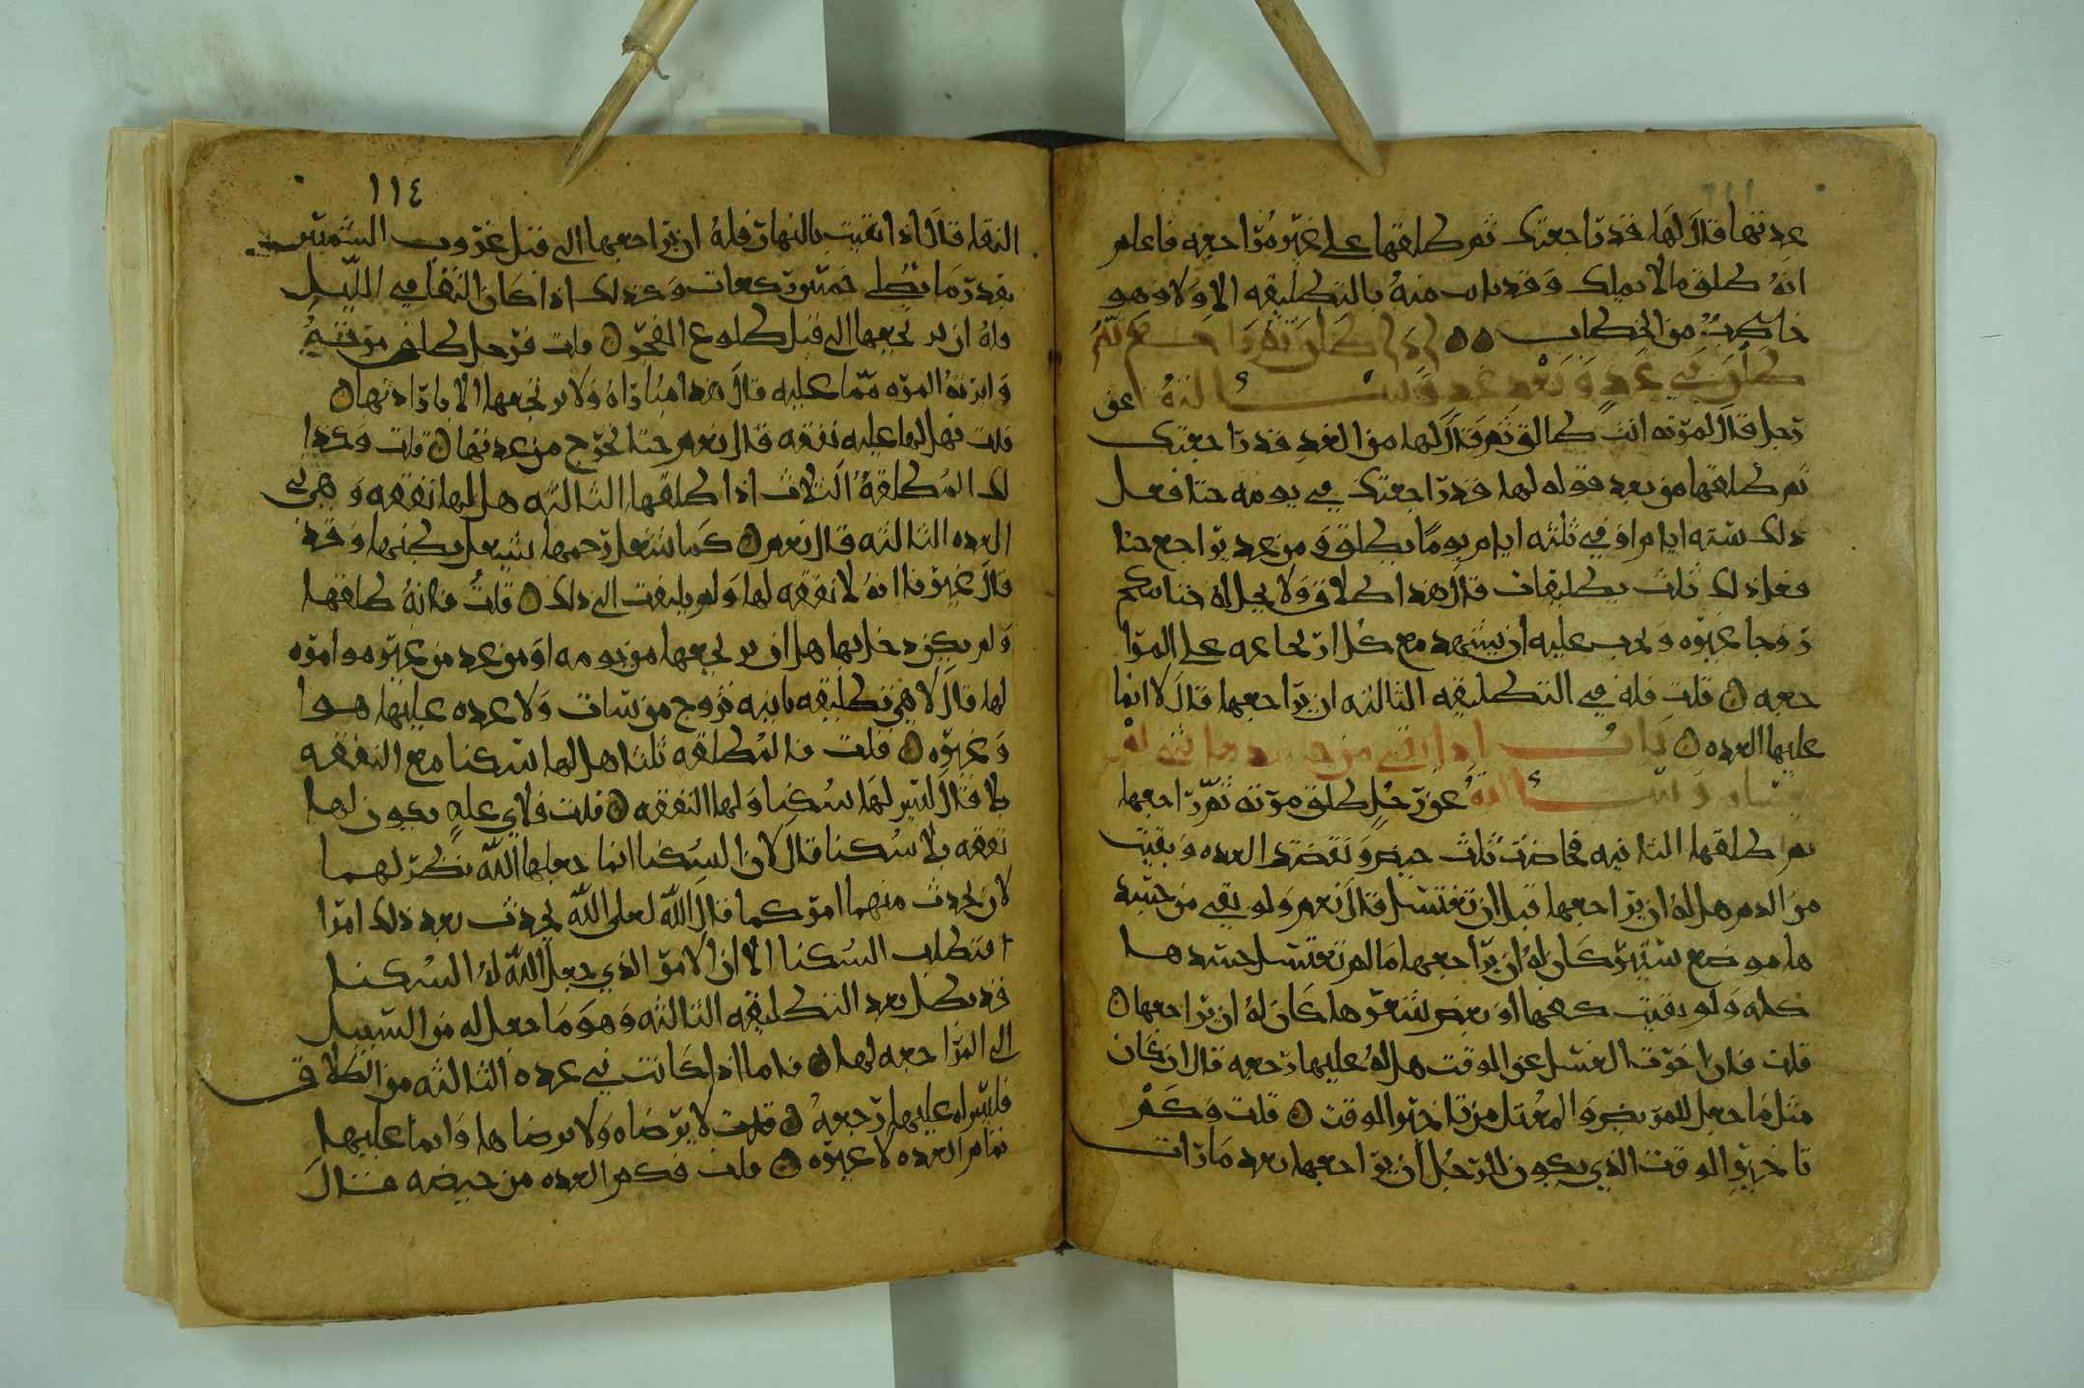 عدتها قال لها قد راجعتك ثم طلقها على غير مراجعه فاعلم
انه طلق ما لا يملك وقد بانت منه بالتطليقه الاولا وهو
خاطب من الخطاب ٥٥
طلق في غد وبعد غد وسالته عن
رجل قال لمرته انت طالق ثم قال لها من الغد قد راجعتك
ثم طلقها من بعد قوله لها قد راجعتك في يومه حتا فعل
ذلك سته ايام او في ثلثه ايام يوما يطلق ومن غد يراجع حتا
فعل ذلك ثلث تطليقات قال هذا طلاق ولا يحل له حتا تنكح
زوجا غيره ويجب عليه ان يشهد مع كل ارتجاعه على المرا
جعه ٥ قلت فله في التطليقه الثالثه ان يراجعها قال لا انما
عليها العده ٥ باب اذا بقي من جسدها شي لم
وسالته عن رجل طلق مرته ثم راجعها
ثم طلقها الثانيه فحاضت ثلث حيض ونقضت العده وبقيت
من الدم هل له ان يراجعها قبل ان تغتسل قال نعم ولو بقي من جسد
ها موضع ستير كان له ان يراجعها ما لم تغتسل جسدها
كله ولو بقيت كفها او بعض شعرها كان له ان يراجعها ٥
قلت فان اخرت الغسل عن الوقت هل له عليها رجعه قال ان كان
مثل ما جعل للمريض والمعتل من تاخير الوقت ٥ قلت وكم
تاخير الوقت الذي يكون للرجل ان يراجعها بعد ما رات
١١٤
النقا قال اذا انقيت بالنهار فله ان يراجعها الى قبل غروب الشمس
بقدر ما تصلي خمس ركعات وكذلك اذا كان النقا في الليل
وله ان يرتجعها الى قبل طلوع الفجر ٥ قلت فرجل طلق مرته
وابرته المره مما عليه قال هذا مباراه ولا يرتجعها الا بارادتها ٥
قلت فهل لها عليه نفقه قال نعم حتا تخرج من عدتها ٥ قلت وكذا
لك المطلقه الثلاث اذا طلقها الثالثه هل لها نفقه وهي في
العده الثالثه قال نعم ٥ كما شغل رحمها يشبعل بطنها وقد
قال غيرنا انه لا نفقه لها ولم يلتفت الى ذلك ٥ قلت فانه طلقها
ولم يكن دخل بها هل ان يرتجعها من يومه او من غد من غير هوا مره
لها قال لا هي تطليقه باينه تزوج من شات ولا عده عليها هوا
وغيره ٥ قلت فالمطلقه ثلثا هل لها سكنا مع النفقه
بلا قال ليس لها سكنا ولها النفقه ٥ قلت فلاي عله يكون لها
نفقه بلا سكنا قال لان السكنا انما جعلها الله نظر لهما
لان يحدث منهما امر كما قال الله لعل الله يحدث بعد ذلك امرا
فتطلب السكنا الا ان الامر الذي جعل الله له السكنا
قد بطل بعد التطليقه الثالثه وهو ما جعل له من السبيل
الى المراجعه لها ٥ فاما اذا كانت في عده الثالثه من الطلاق
فليس له عليها رجعه ٥ قلت لا برضاه ولا برضاها وانما عليها
تمام العده لا غيره ٥ قلت فكم العده من حيضه قال